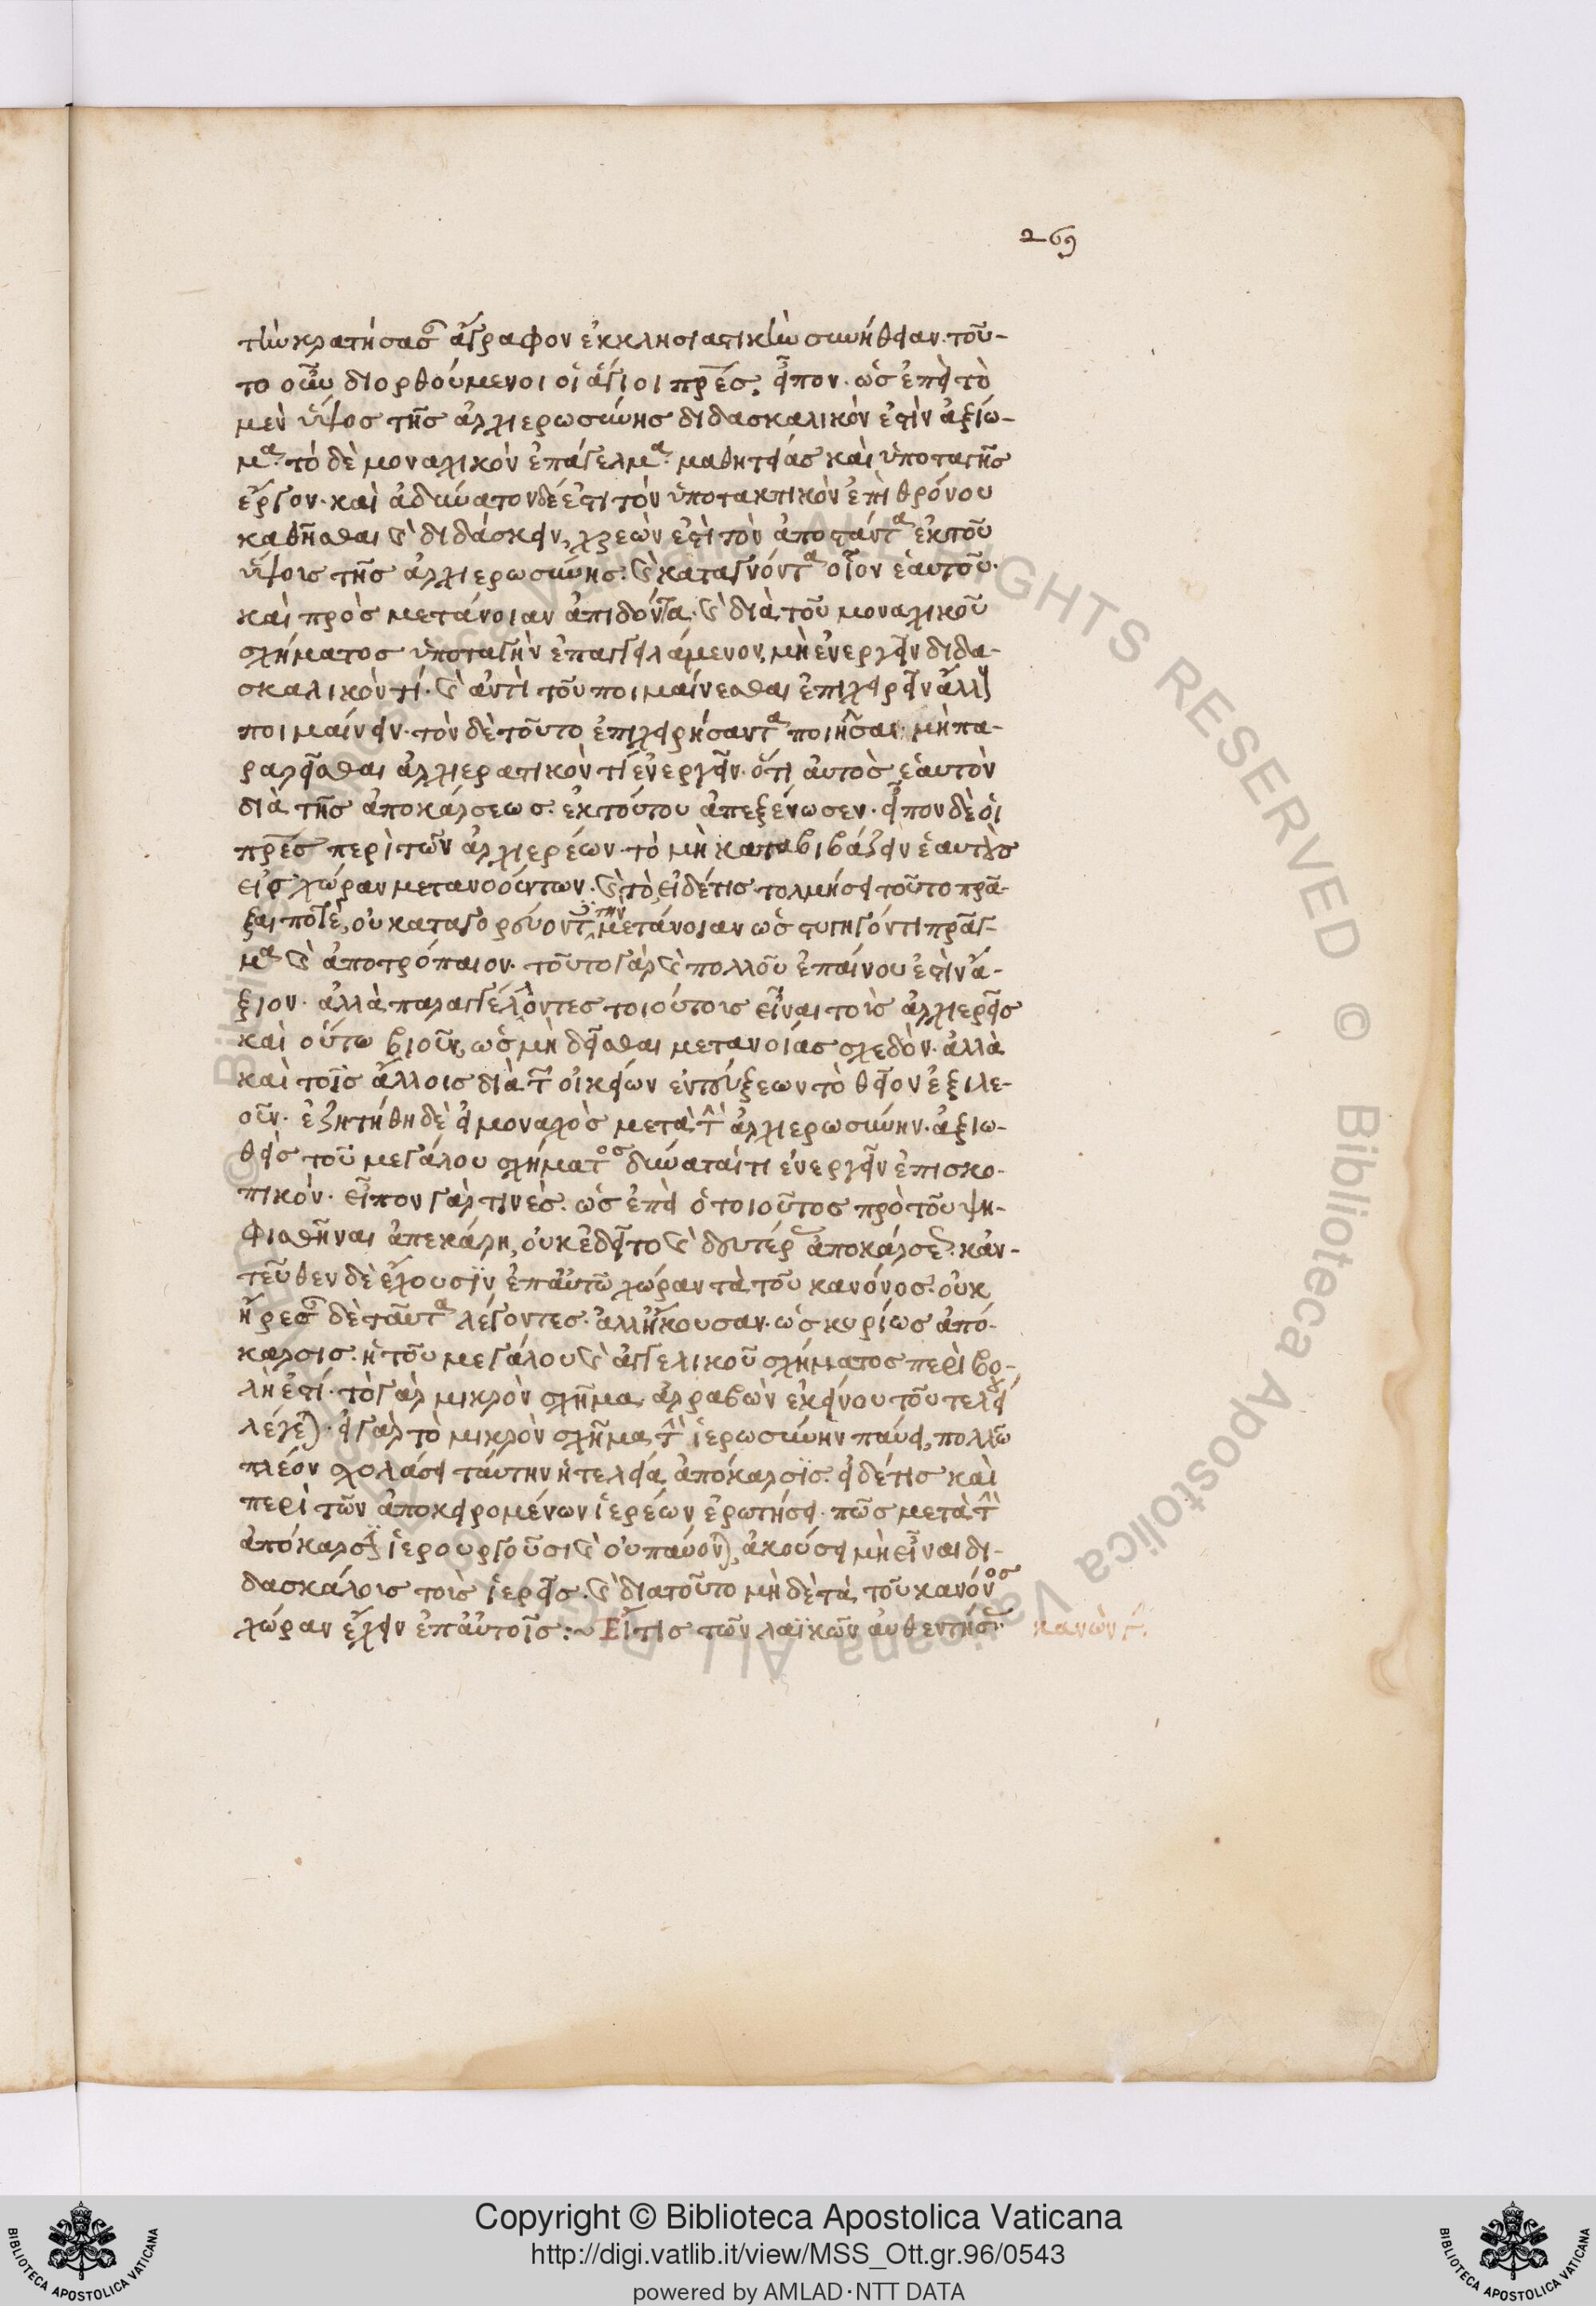 269
τὴν κρατήσασαν ἄγραφον ἐκκλησιαστικὴν συνήθειαν. τοῦ-
το οὖν διορθούμενοι οἱ ἅγιοι πρες, εἶπον. ὡς ἐπεὶ τὸ
μὲν ὕψος τῆς ἀρχιερωσύνης διδασκαλικόν ἐστιν ἀξίω-
μα. τὸ δὲ μοναχικὸν ἐπάγελμα. μαθητείας καὶ ὑποταγῆς
ἔργον. καὶ ἀδύνατον δέ ἐστι τὸν ὑποτακτικὸν ἐπὶ θρόνου
καθῆσθαι καὶ διδάσκειν, χρεών ἐστὶ τὸν ἀποστάντα ἐκ τοῦ
ὕψους τῆς ἀρχιερωσύνης. καὶ καταγνόντα οἷον ἑαυτοῦ.
καὶ πρὸς μετάνοιαν ἀπιδόντα. καὶ διὰ τοῦ μοναχικοῦ
σχήματος ὑποταγὴν ἐπαγγειλάμενον, μὴ ἐνεργεῖν διδα-
σκαλικόν τί. καὶ ἀντὶ τοῦ ποιμαίνεσθαι ἐπιχειρεῖν ἄλλους
ποιμαίνειν. τὸν δὲ τοῦτο ἐπιχειρήσαντα ποιῆσαι. μὴ πα-
ραχωρεῖσθαι ἀρχιερατικόν τί ἐνεργεῖν. ὅτι αὐτὸς ἑαυτὸν
διὰ τῆς ἀποκάρσεως ἐκ τούτου ἀπεξένωσεν. εἶπον δὲ οἱ
πρες περὶ τῶν ἀρχιερέων. τὸ μὴ καταβιβάζειν ἑαυτοὺς
εἰς χώραν μετανοούντων. καὶ τὸ, εἰ δέ τις τολμήσει τοῦτο πρᾶ-
ξαι ποτὲ, οὐ κατηγορεύοντες τὴν μετάνοιαν ὡς στυγητόν τι πρᾶγ-
μα καὶ ἀποτρόπαιον. τοῦτο γὰρ καὶ πολλοῦ ἐπαίνου ἐστὶν ἄ-
ξιον. ἀλλὰ παραγγέλλοντες τοιούτους εἶναι τοὺς ἀρχιερεῖς
καὶ οὕτω βιοῦν, ὡς μὴ δεῖσθαι μετανοίας σχεδὸν. ἀλλὰ
καὶ τοῖς ἄλλοις διὰ τῶν οἰκείων ἐντεύξεων τὸ θεῖον ἐξιλε-
οῦν. ἐζητήθη δὲ εἰ μοναχὸς μετὰ τὴν ἀρχιερωσύνην. ἀξιω-
θεὶς τοῦ μεγάλου σχήματος δύναταί τι ἐνεργεῖν ἐπισκο-
πικόν. εἶπον γάρ τινὲς. ὡς ἐπεὶ ὁ τοιοῦτος πρὸ τοῦ ψη-
φισθῆναι ἀπεκάρη, οὐκ ἐδεῖτο καὶ δευτέρας ἀποκάρσεως. κἀν-
τεῦθεν δὲ ἔχουσιν ἐπ' αὐτῷ χώραν τὰ τοῦ κανόνος. οὐκ
ἤρεσαν δὲ ταῦτα λέγοντες. ἀλλ' ἤκουσαν. ὡς κυρίως ἀπό-
καρσις. ἡ τοῦ μεγάλου καὶ ἀγγελικοῦ σχήματος περιβο-
λή ἐστί. τὸ γὰρ μικρὸν σχῆμα. ἀρραβὼν ἐκείνου τοῦ τελείου
λέγεται. εἰ γὰρ τὸ μικρὸν σχῆμα τὴν ἱερωσύνην παύει, πολλῷ
πλέον σχολάσει ταύτην ἡ τελεία ἀπόκαρσις. εἰ δέ τις καὶ
περὶ τῶν ἀποκειρομένων ἱερέων ἐρωτήσει. πῶς μετὰ τὴν
ἀπόκαρσιν ἱερουργοῦσι καὶ οὐ παύονται, ἀκούσει μὴ εἶναι δι-
δασκάλους τοὺς ἱερεῖς. καὶ διατοῦτο μὴ δὲ τὰ τοῦ κανόνος
χώραν ἔχειν ἐπ' αὐτοῖς :~ Εἴ τις τῶν λαϊκῶν αὐθεντήσας κανὼν γ.
Copyright © Biblioteca Apostolica Vaticana
http://digi.vatlib.it/view/MSS_Ott.gr.96/0543
powered by AMLAD·NTT DATA